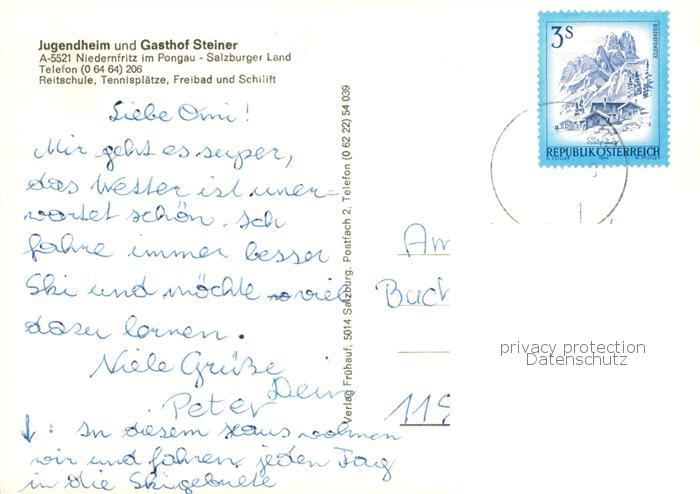 Jugendheim und Gasthof Steiner
A-5521 Niedernfritz im Pongau - Salzburger Land
Telefon (0 64 64) 206
Reitschule, Tennisplätze, Freibad und Schilift
Liebe Omi!
Mir geht es super,
das Wetter ist uner=
wartet schön. Ich
fahre immer besser
Ski und möchte so viel
dazu lernen.
Viele Grüße
Dein
Peter
↓: In diesem Haus wohnen
wir und fahren jeden Tag
in die Skigebiete
Verlag Frühauf, 5014 Salzburg, Postfach 2, Telefon (0 62 22) 54 039
3s
BISCHOFSMÜTZE
Salzburg
REPUBLIK ÖSTERREICH
1
An
Buch
119
privacy protection
Datenschutz